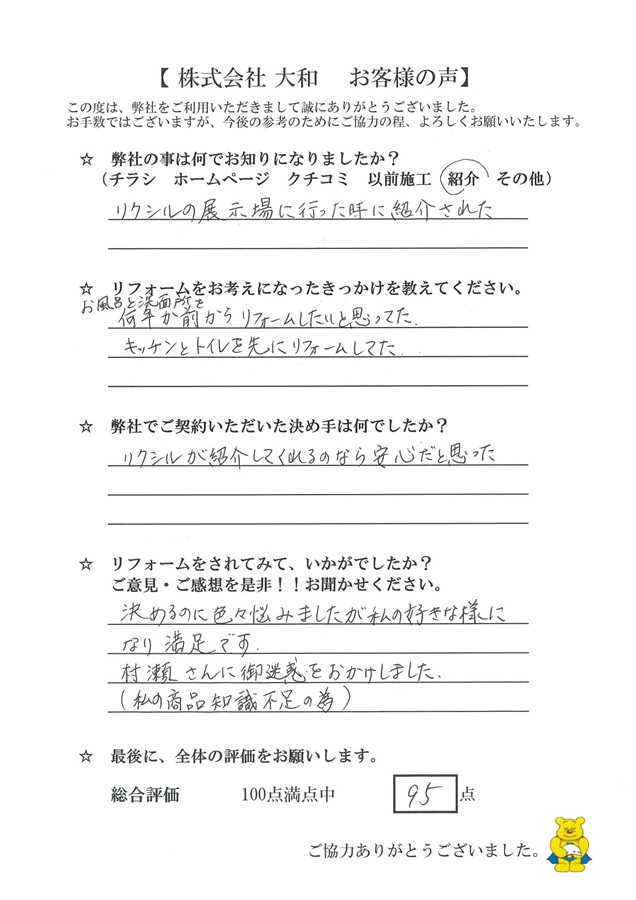 【 株式会社 大和　お客様の声】
この度は、弊社をご利用いただきまして誠にありがとうございました。
お手数ではございますが、今後の参考のためにご協力の程、よろしくお願いいたします。
☆　弊社の事は何でお知りになりましたか？
（チラシ　ホームページ　クチコミ　以前施工　紹介　その他）
リクシルの展示場に行った時に紹介された
☆　リフォームをお考えになったきっかけを教えてください。
お風呂と洗面所を
何年か前からリフォームしたいと思ってた.
キッチンとトイレを先にリフォームしてた.
☆　弊社でご契約いただいた決め手は何でしたか？
リクシルが紹介してくれるのなら安心だと思った
☆　リフォームをされてみて、いかがでしたか？
ご意見・ご感想を是非！！お聞かせください。
決めるのに色々悩みましたが私の好きな様に
なり満足です.
村瀬さんに御迷惑をおかけしました.
(私の商品知識不足の為)
☆　最後に、全体の評価をお願いします。
総合評価　100点満点中　95 点
ご協力ありがとうございました。